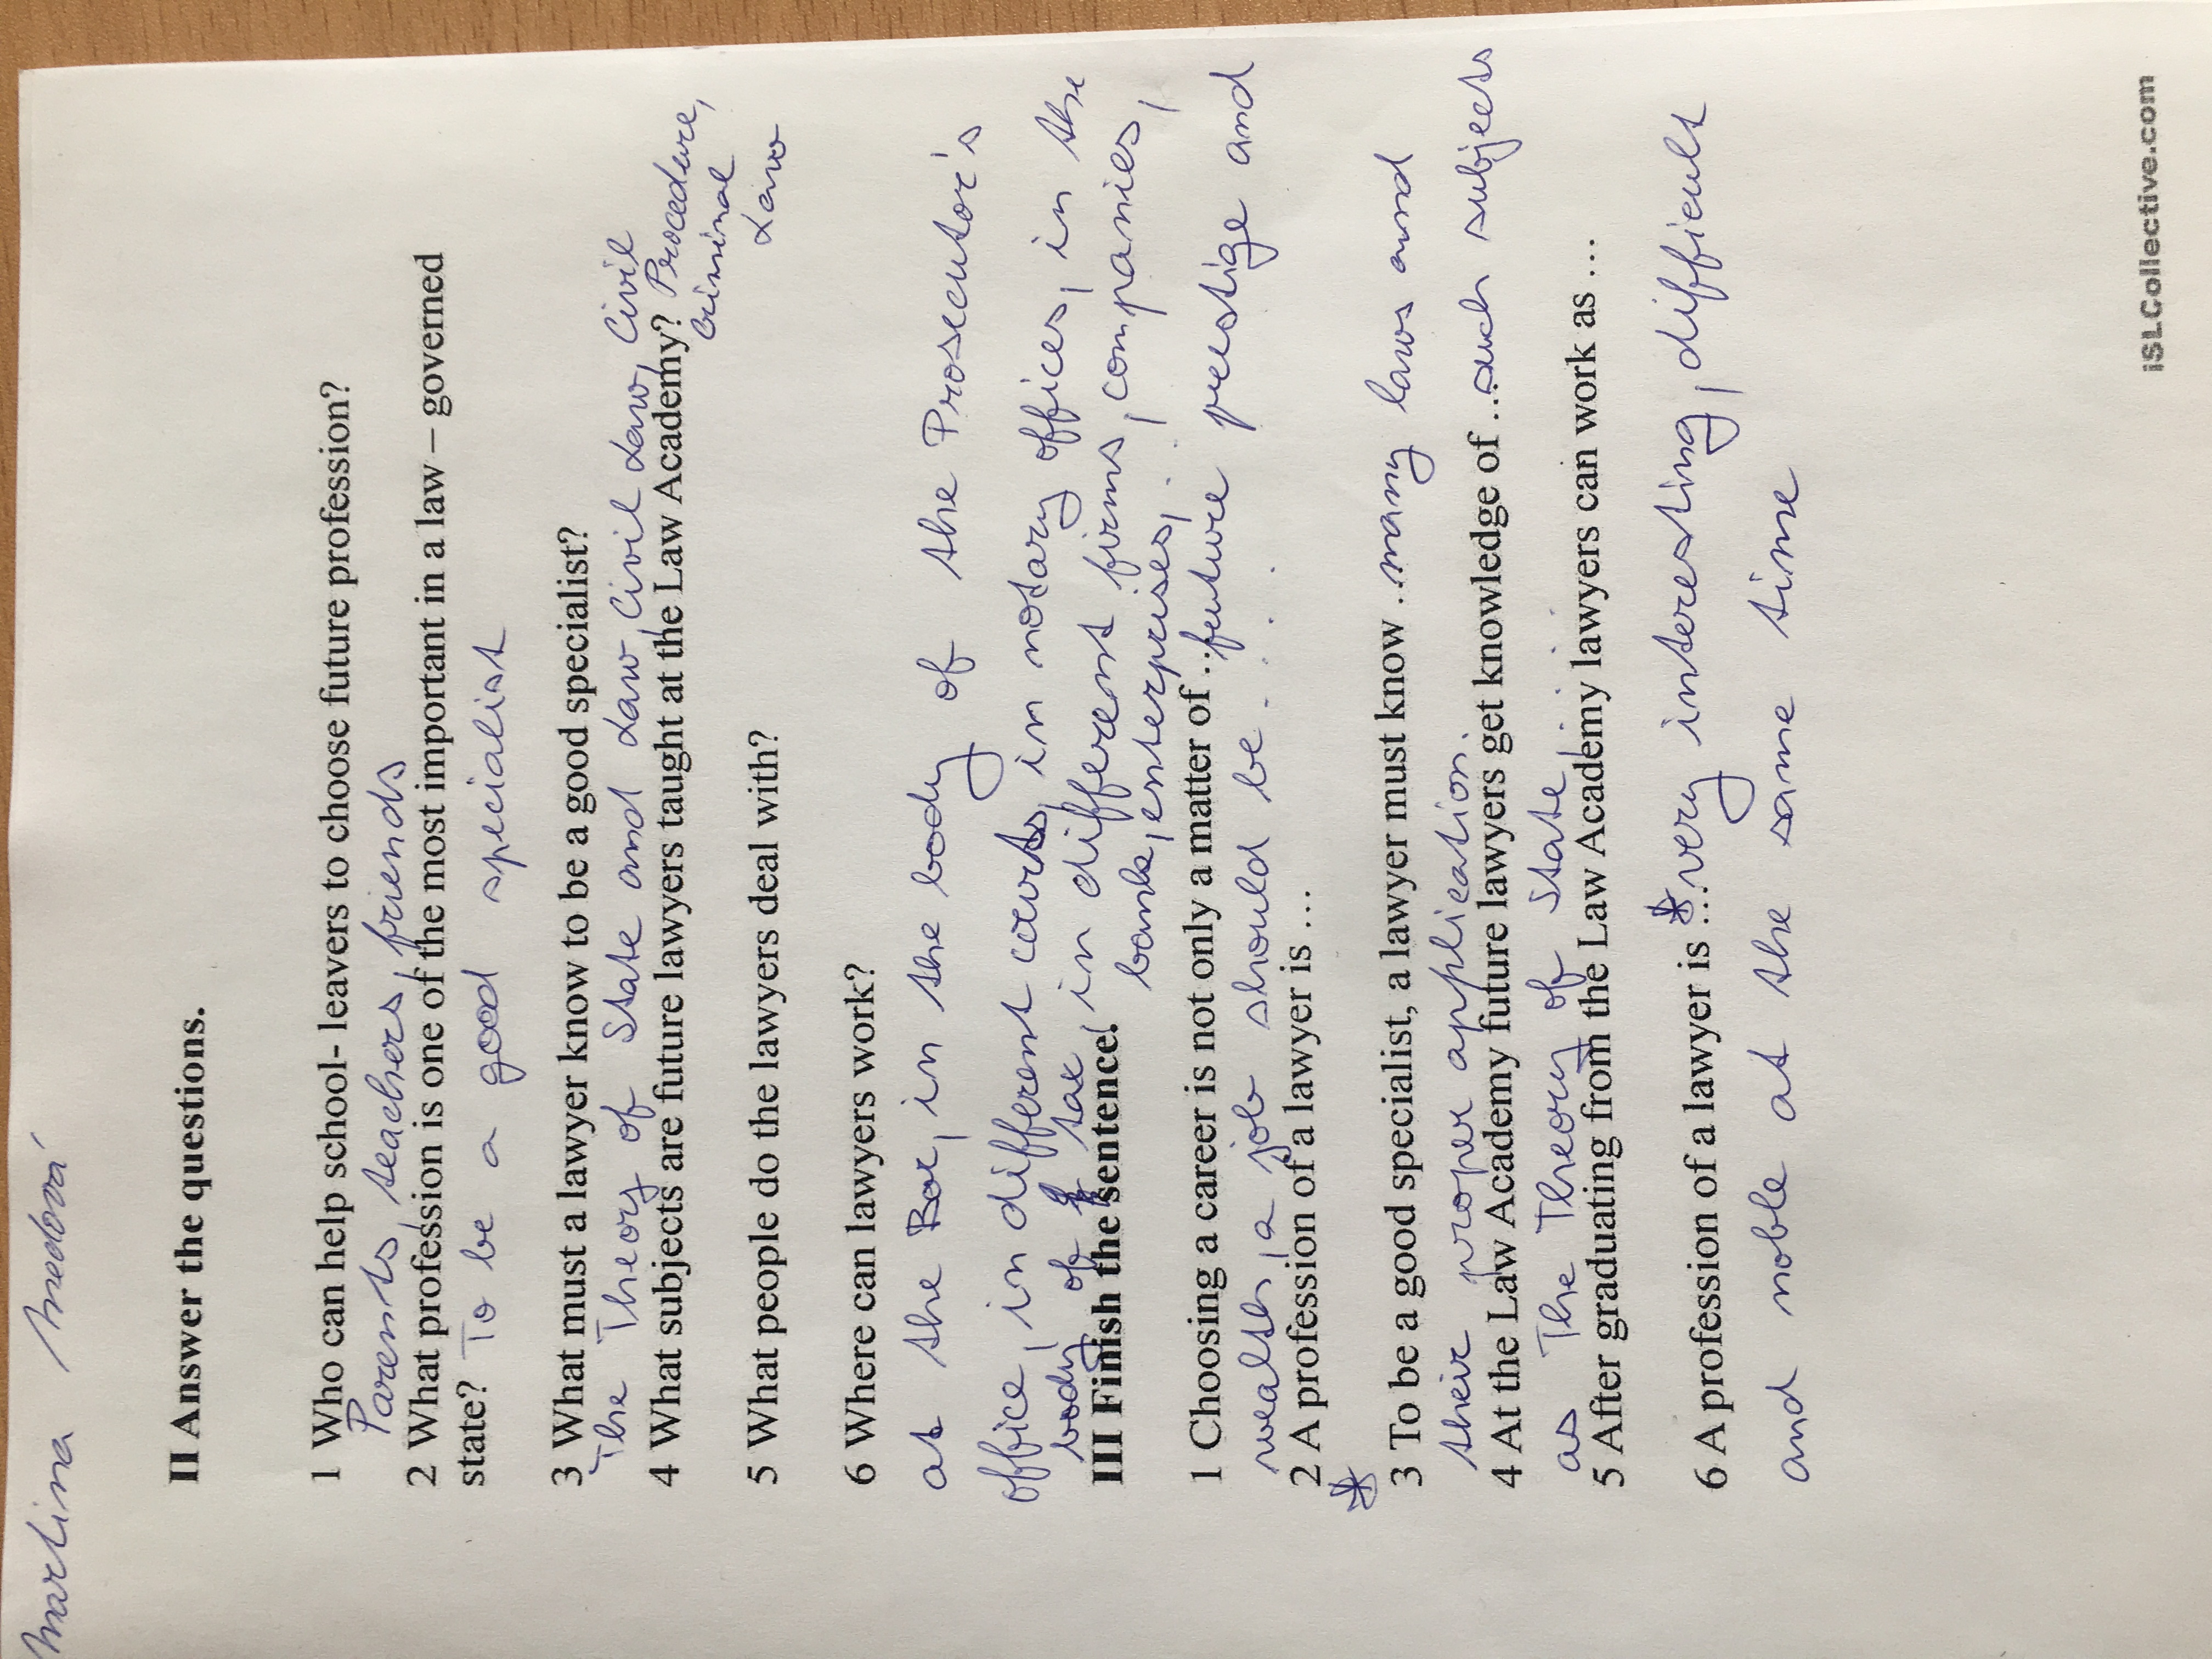 Martina Medová
II Answer the questions.
1 Who can help school- leavers to choose future profession?
Parents, teachers, friends
2 What profession is one of the most important in a law – governed
state? To be a good specialist
3 What must a lawyer know to be a good specialist?
The Theory of State and Law, Civil Law, Civil
4 What subjects are future lawyers taught at the Law Academy? Procedure,
Criminal
Law
5 What people do the lawyers deal with?
6 Where can lawyers work?
at the Bar, in the body of the Prosecutor's
office, in different courts, in notary offices, in the
body of tax, in different firms, companies,
bank, enterprises,
III Finish the sentence.
1 Choosing a career is not only a matter of ... future prestige and
wealth, a job should be . . .
2 A profession of a lawyer is ...
*
3 To be a good specialist, a lawyer must know ... many laws and
their proper application.
4 At the Law Academy future lawyers get knowledge of ... such subjects
as The Theory of State, . . .
5 After graduating from the Law Academy lawyers can work as ...
6 A profession of a lawyer is ... * very interesting, difficult
and noble at the same time
iSLCollective.com